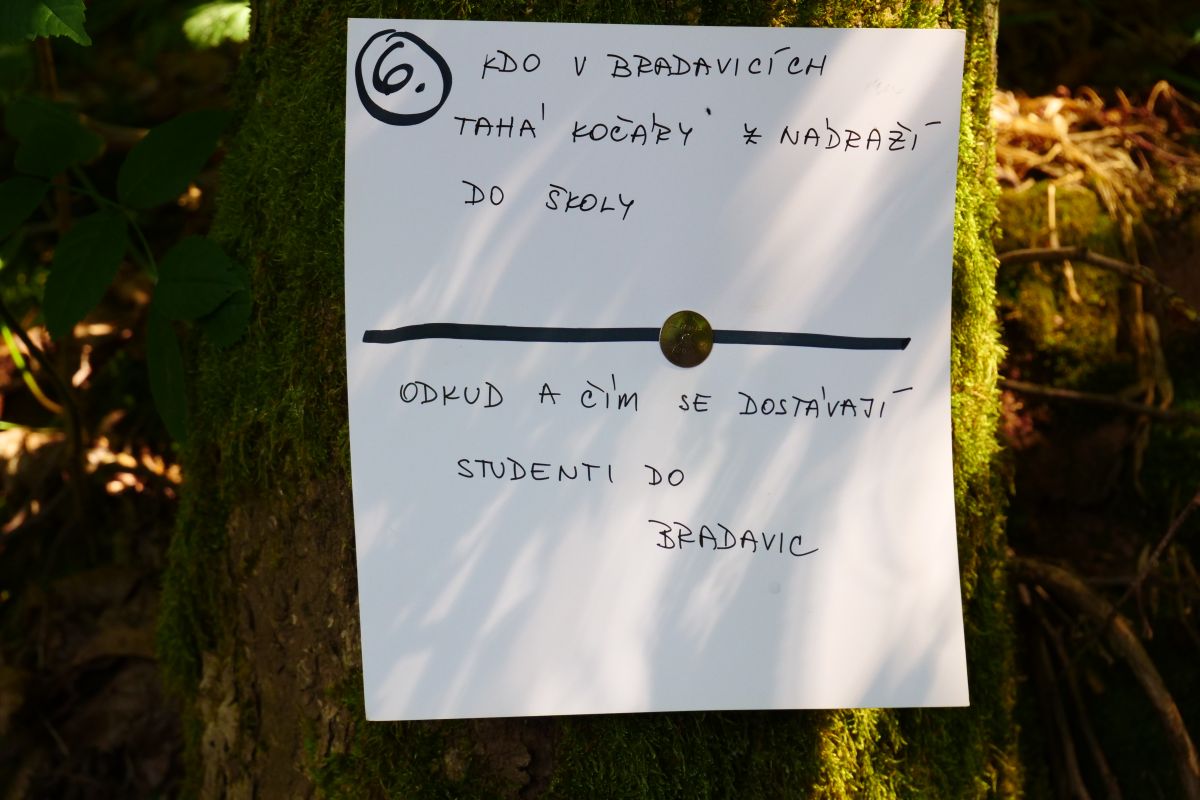 6.
KDO V BRADAVICÍCH
TAHÁ KOČÁRY Z NÁDRAŽÍ
DO ŠKOLY
ODKUD A ČÍM SE DOSTÁVAJÍ
STUDENTI DO
BRADAVIC